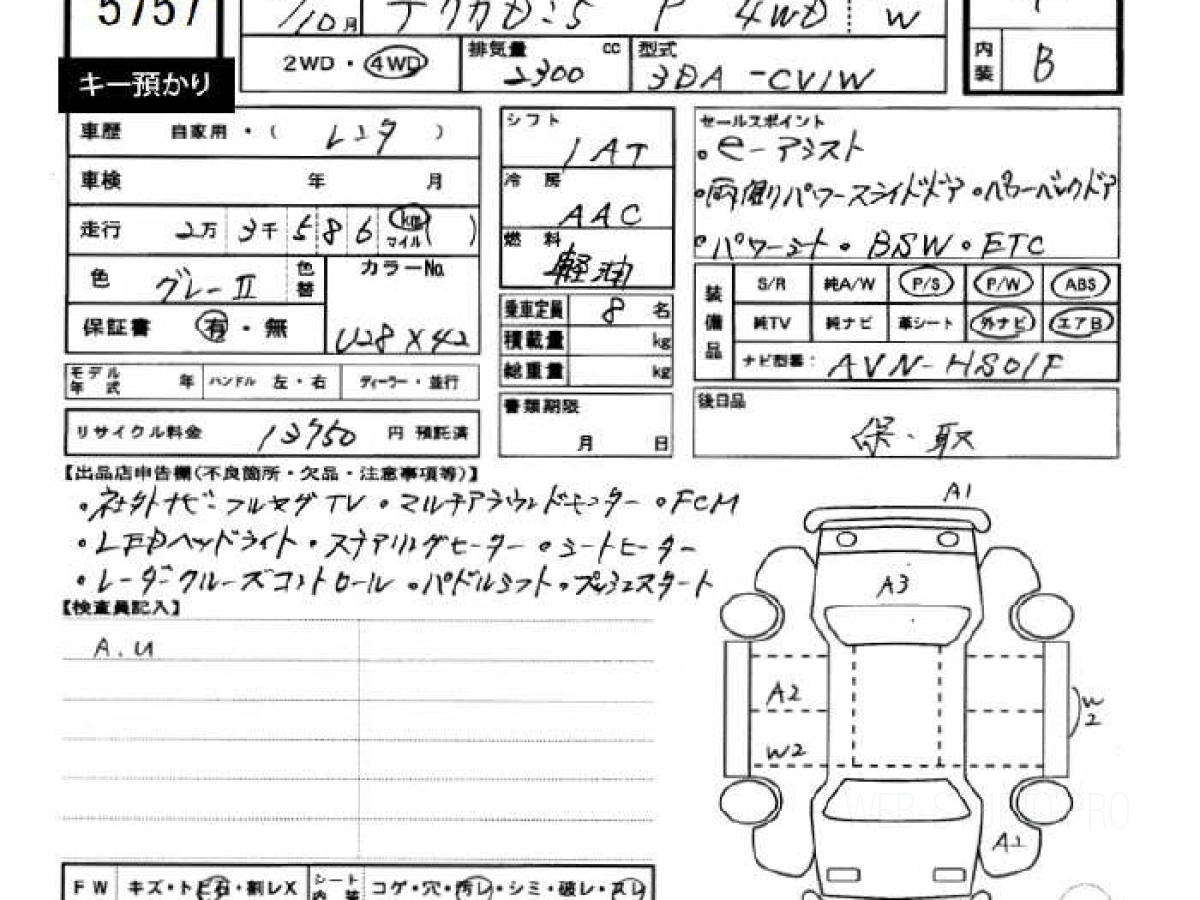 5757
/10月 デリカD:5 P 4WD W
2WD・4WD 排気量 2300 cc 型式 3DA-CV1W
内装 B
キー預かり
車歴 自家用・( レンタ )
車検 年 月
走行 2万3千586 km マイル( )
色 グレーⅡ 色替 カラーNo. U28 X42
保証書 有・無
モデル年式 年 ハンドル 左・右 ディーラー・並行
リサイクル料金 13750 円 預託済
シフト 1AT
冷房 AAC
燃料 軽油
乗車定員 8 名
積載量 kg
総重量 kg
書類期限 月 日
セールスポイント
・e-アシスト
・両側パワースライドドア・パワーバックドア
・パワーシート・BSW・ETC
装備品 S/R 純A/W P/S P/W ABS
純TV 純ナビ 革シート 外ナビ エアB
ナビ型番: AVN-HS01F
後日品
保・取
【出品店申告欄(不良箇所・欠品・注意事項等)】
・社外ナビ・フルセグTV・マルチアラウンドモニター・FCM
・LEDヘッドライト・ステアリングヒーター・シートヒーター
・レーダークルーズコントロール・パドルシフト・プッシュスタート
【検査員記入】
A.U
A1
A3
A2
W2
W2
A2
FW キズ・トビ石・割レX シート内装 コゲ・穴・汚レ・シミ・破レ・スレ
WEB-S PRO